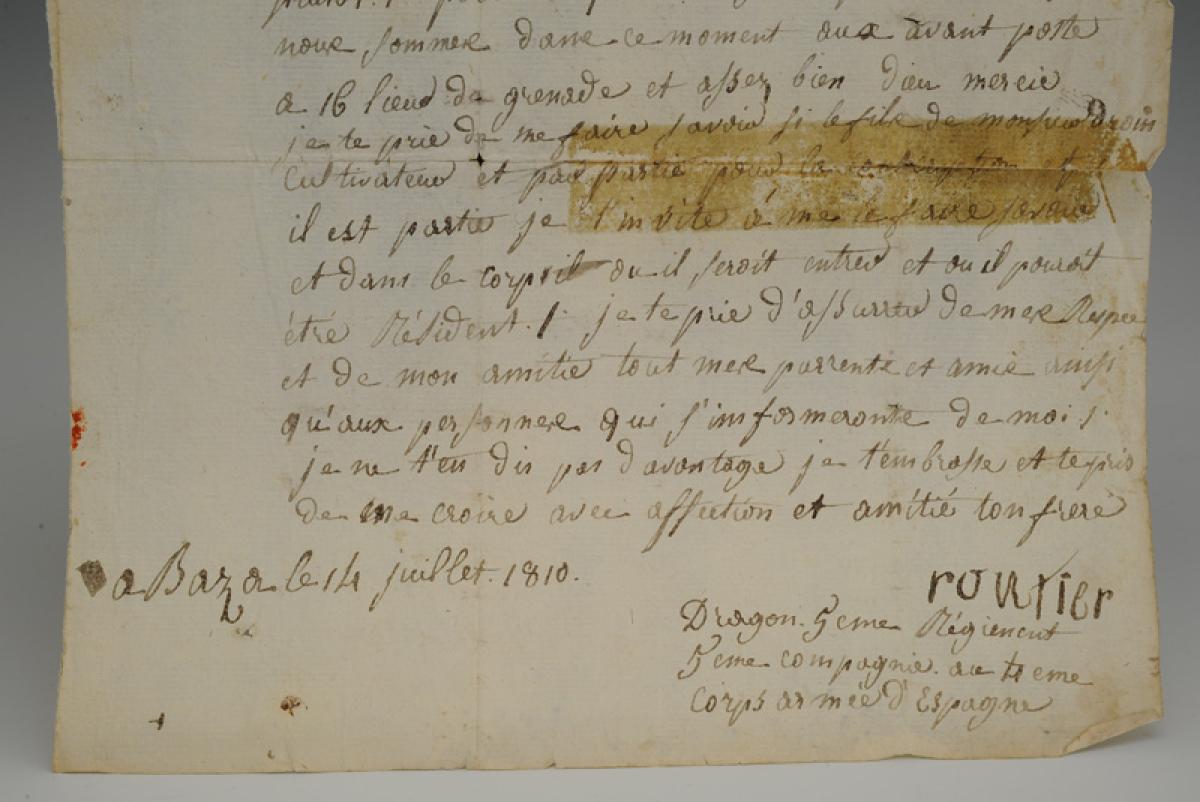 nous sommes dans ce moment aux avant poste
a 16 lieus de grenade et assez bien dieu mercie
je te prie de me faire savoir si le fils de monsieur drouin
cultivateur et pas partie pour la
il est partie je t'invite à me le faire savoir
et dans le corps il ou il seroit entrer et ou il pouroit
être Résident. /. je te prie d'assurer de mes Respec
et de mon amitie tout mes parrents et amie ainsi
qu'aux personnes qui s'imformeronte de moi /.
je ne t'en dis pas davantage je t'embrasse et te pris
de me croire avec affection et amitié ton frere
a Baza le 14 juillet. 1810.
routier
Dragon. 5eme Régiement
5eme compagnie. au 4eme
Corps armée d'Espagne